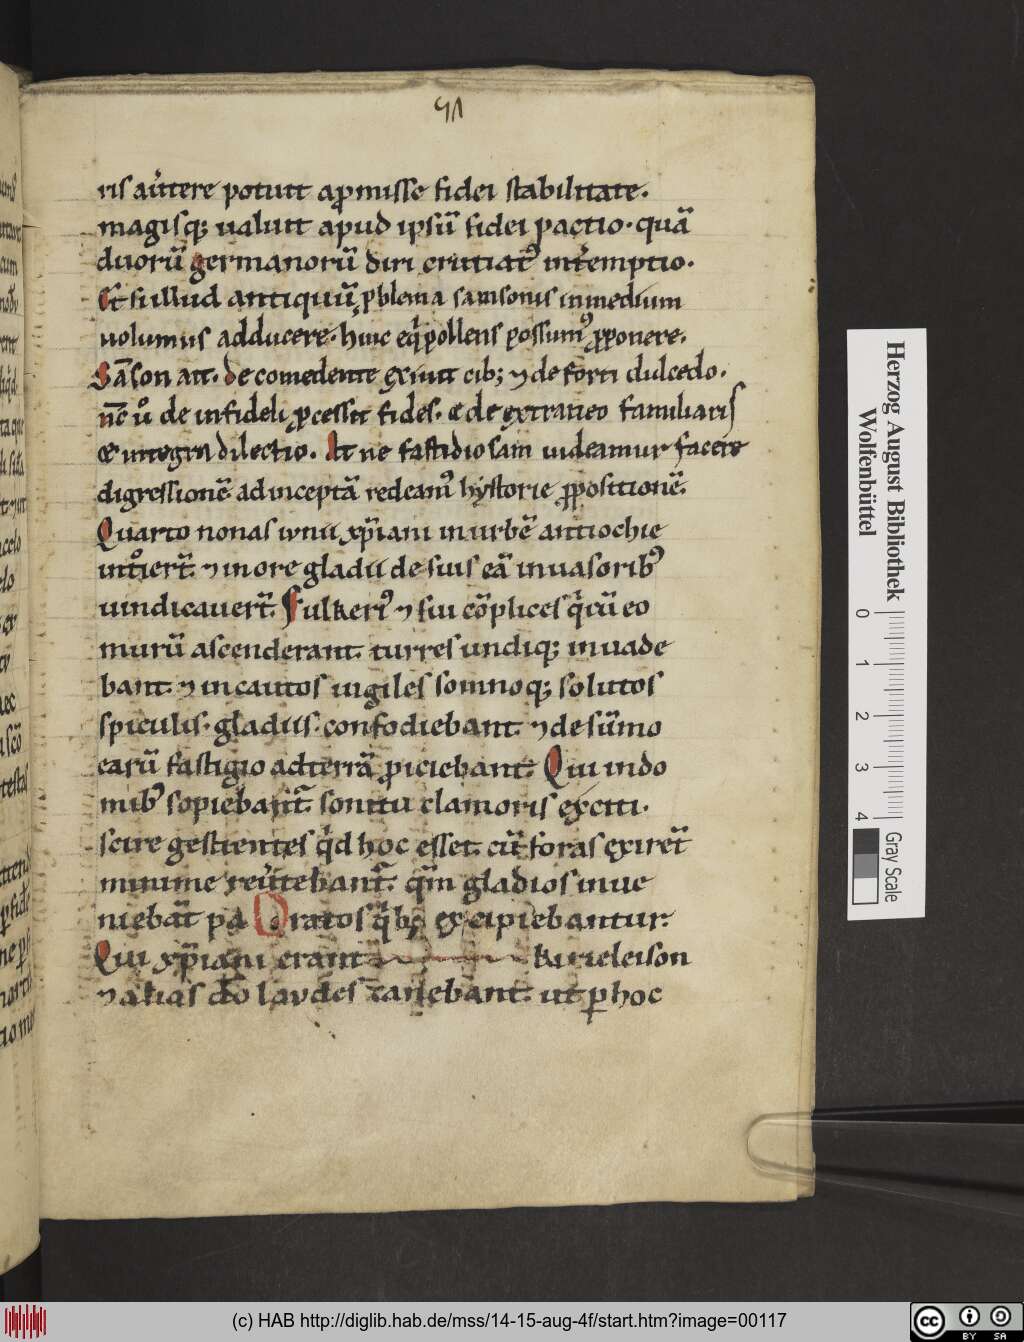 51
ris aut̃tere potuit a ꝓmisse fidei stabilitate.
magisq; ualuit apud ipsū fidei pactio. quā
duorū germanorū diri cruciatꝰ int̃emptio.
Et si illud antiquū, ꝓblema samsonis inmedium
uolumus adducere. huic eq̇pollens possumꝰ ꝓponere.
Sāson ait. de comedente exiuit cib; ⁊ de forti dulcedo.
nc̄ ůo de infideli ꝓcessit fides. & de extraneo familiaris
& integra dilectio. At ne fastidiosam uideamur facere
digressionē ad inceptā redeamꝰ hystorie ꝓpositionē.
Quarto nonas iunii xp̄iani in urbē antiochie
int̊iert̃. ⁊ in ore gladii de suis eā inuasoribꝰ
uindicauert̃. Fulkerꝰ ⁊ sui cōplices q̇ cū eo
murū ascenderant. turres undiq; inuade
bant. ⁊ incautos uigiles somnoq; solutos
spiculis. gladiis. confodiebant. ⁊ de sūmo
earū fastigio adterrā ꝓiciebant. Qui indo
mibꝰ sopiebant̃. sonitu clamoris exciti.
scire gestientes q̇d hoc esset. cū foras exiret̃
minime reůtebant̃. qm̄ gladios inue
niebāt pa Dratos q̇b; excipiebantur.
Qui xp̄iani erant kirieleison
⁊ alias dō laudes canebant. ut ꝑ hoc
Herzog August Bibliothek
Wolfenbüttel
0 1 2 3 4
Gray Scale
(c) HAB http://diglib.hab.de/mss/14-15-aug-4f/start.htm?image=00117
cc BY SA